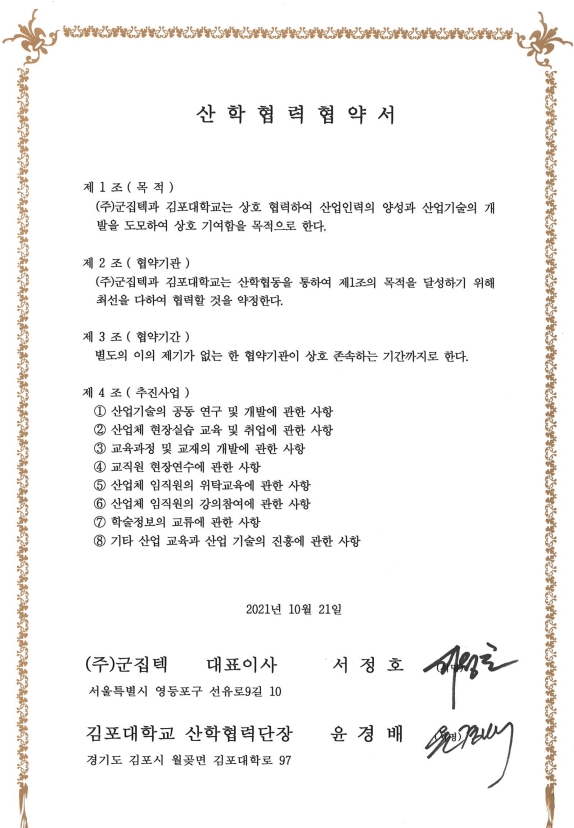 산 학 협 력 협 약 서
제 1 조 ( 목 적 )
(주)군집텍과 김포대학교는 상호 협력하여 산업인력의 양성과 산업기술의 개
발을 도모하여 상호 기여함을 목적으로 한다.
제 2 조 ( 협약기관 )
(주)군집텍과 김포대학교는 산학협동을 통하여 제1조의 목적을 달성하기 위해
최선을 다하여 협력할 것을 약정한다.
제 3 조 ( 협약기간 )
별도의 이의 제기가 없는 한 협약기관이 상호 존속하는 기간까지로 한다.
제 4 조 ( 추진사업 )
① 산업기술의 공동 연구 및 개발에 관한 사항
② 산업체 현장실습 교육 및 취업에 관한 사항
③ 교육과정 및 교재의 개발에 관한 사항
④ 교직원 현장연수에 관한 사항
⑤ 산업체 임직원의 위탁교육에 관한 사항
⑥ 산업체 임직원의 강의참여에 관한 사항
⑦ 학술정보의 교류에 관한 사항
⑧ 기타 산업 교육과 산업 기술의 진흥에 관한 사항
2021년 10월 21일
(주)군집텍 대표이사 서 정 호
서울특별시 영등포구 선유로9길 10
김포대학교 산학협력단장 윤 경 배
경기도 김포시 월곶면 김포대학로 97